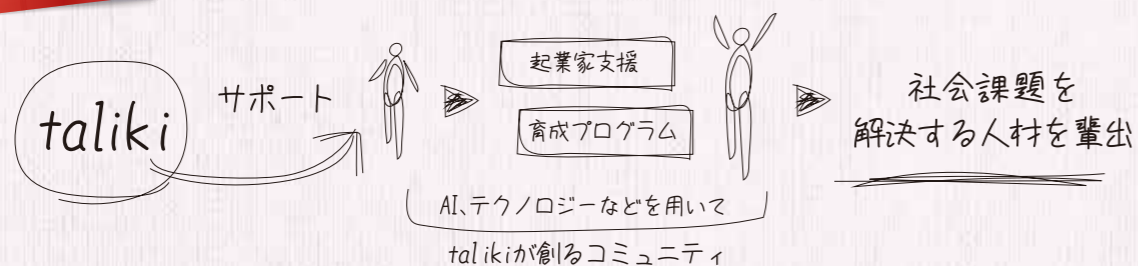 taliki
サポート
起業家支援
育成プログラム
AI、テクノロジーなどを用いて
talikiが創るコミュニティ
社会課題を
解決する人材を輩出